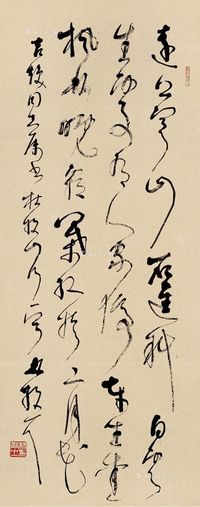 遠上寒山石徑斜白雲
生處有人家停車坐愛
楓林晚霜葉紅於二月花
同志屬書杜牧山行一